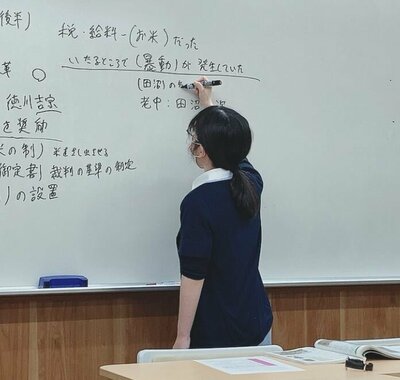 後半)
税・給料-(お米)だった
いたるところで(暴動)が発生していた
革
(田沼)の
徳川吉宗
老中:田沼
を奨励
米の制) 米を差し出させる
御定書) 裁判の基準の制定
)の設置